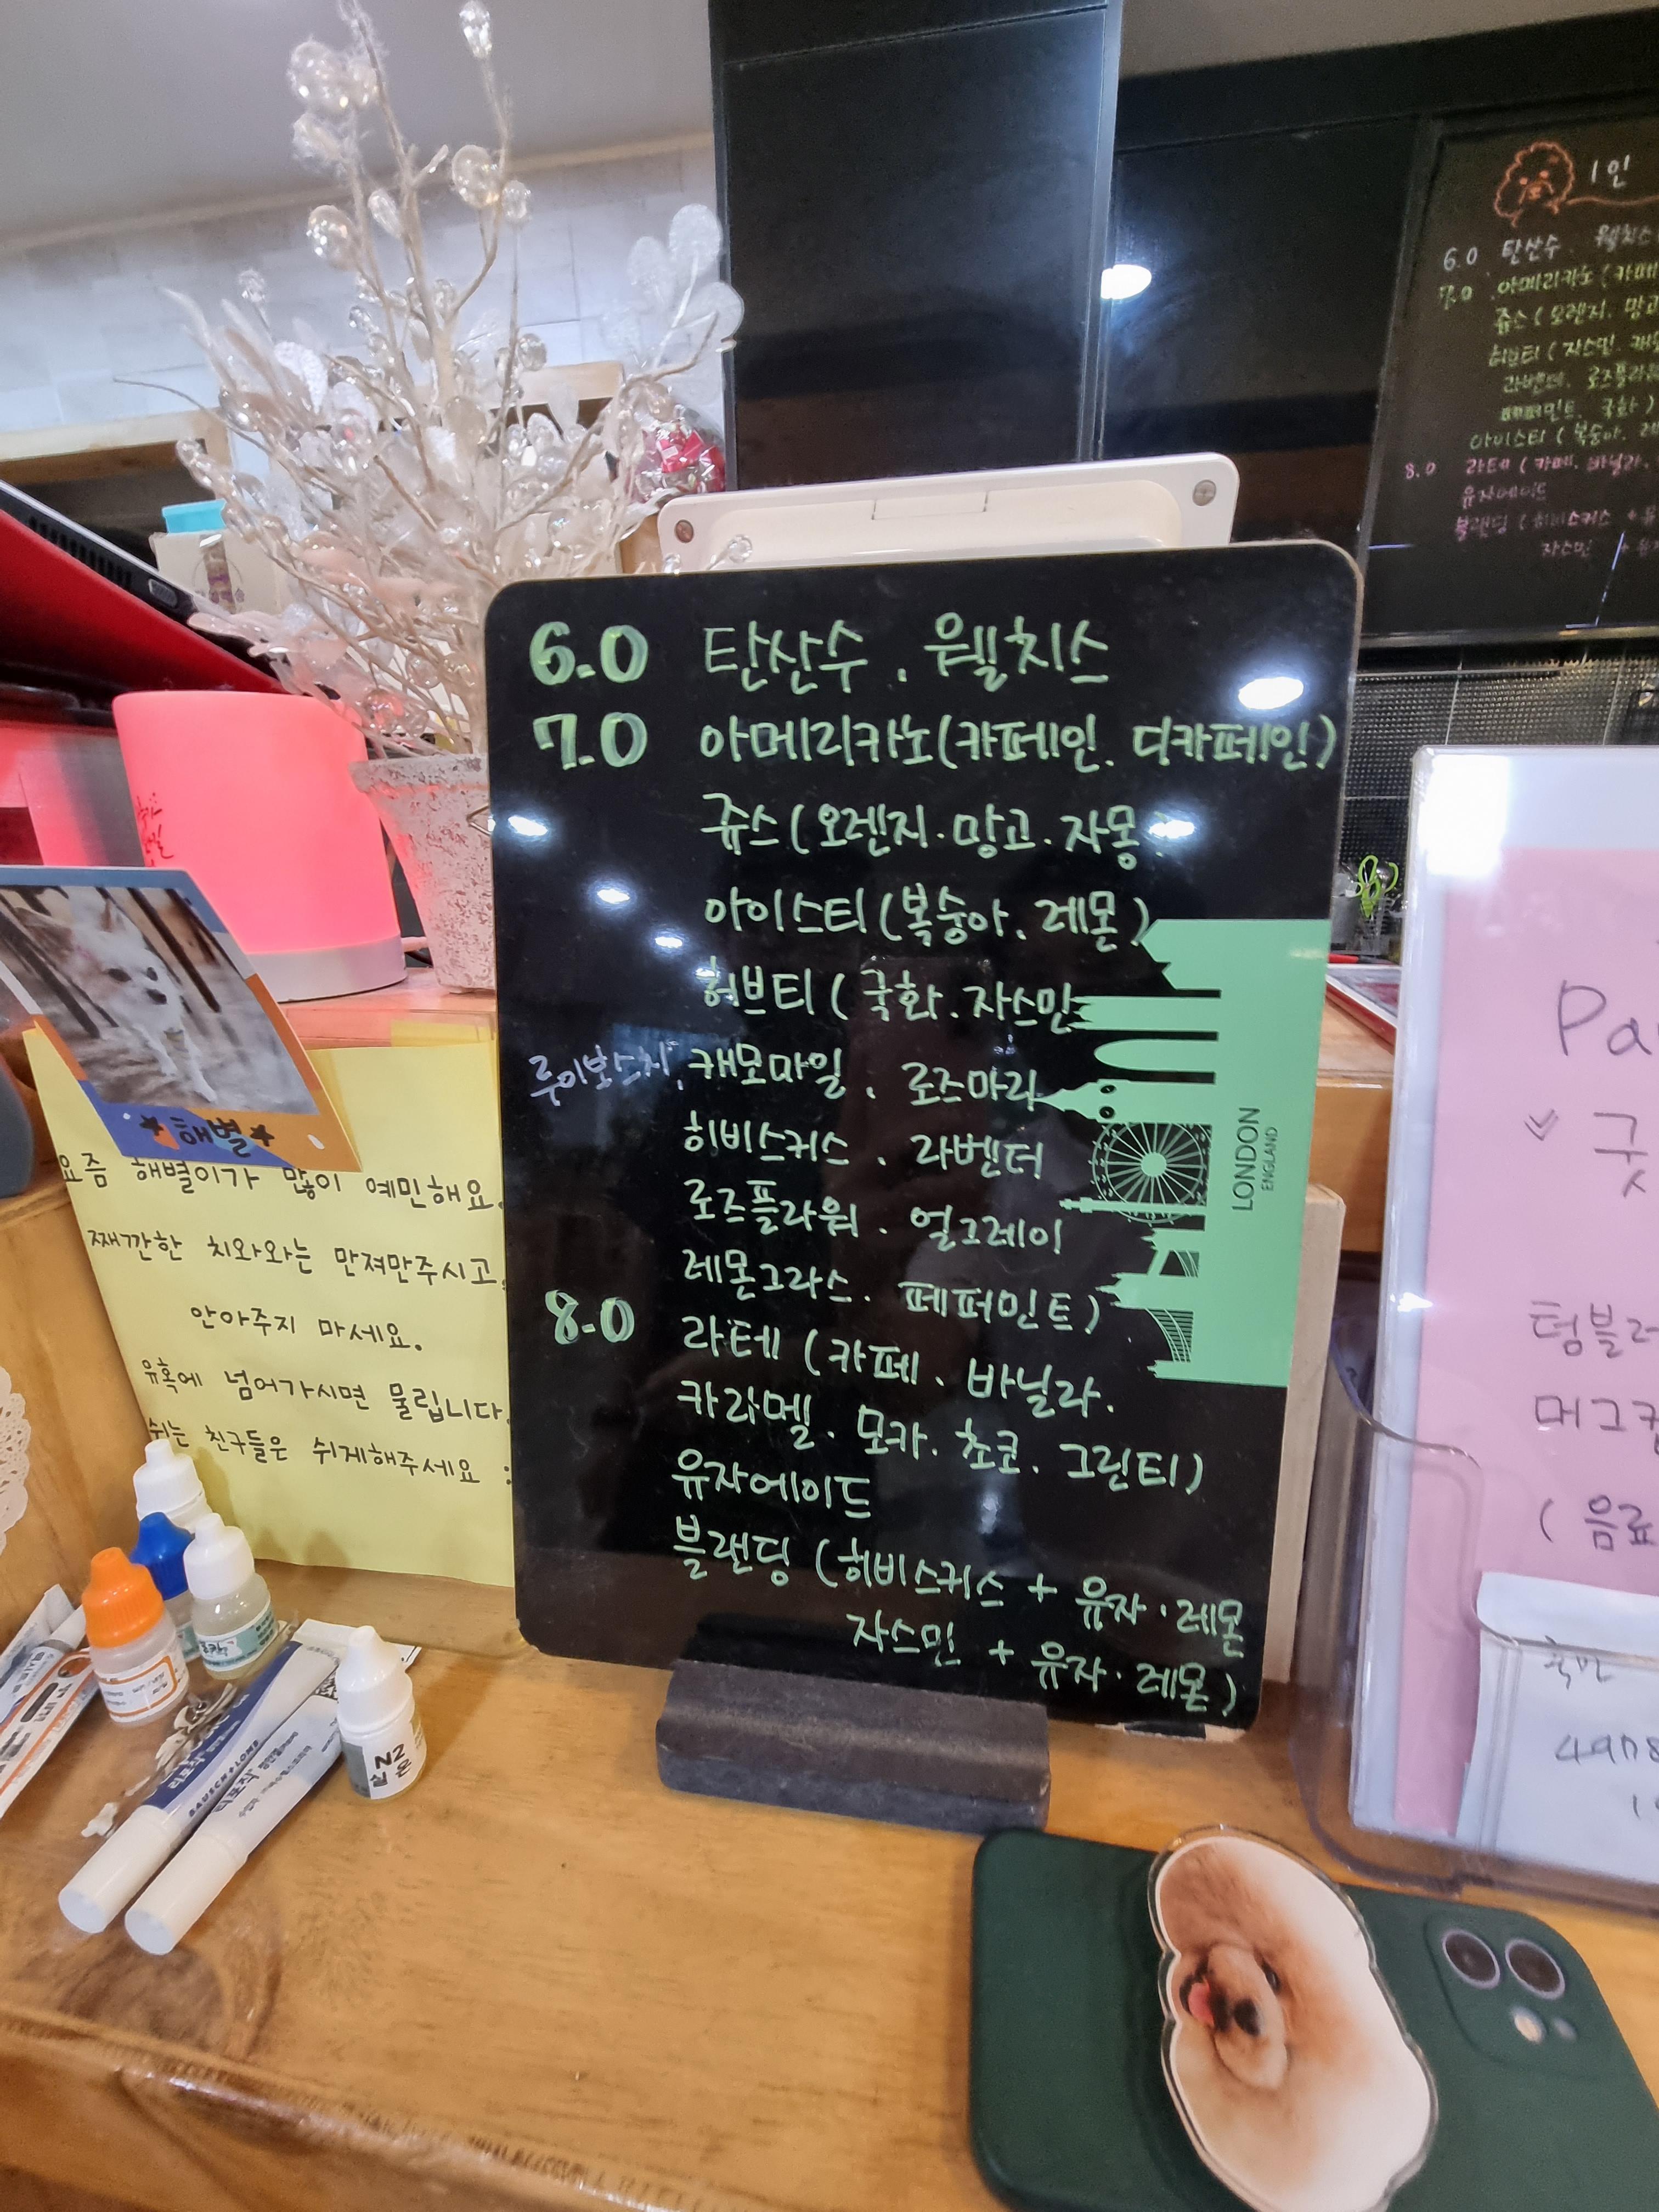 6.0 탄산수 . 웰치스
7.0 아메리카노(카페인. 디카페인)
쥬스(오렌지.망고.자몽)
아이스티(복숭아.레몬)
허브티(국화.자스민
루이보스차, 캐모마일. 로즈마리
히비스커스 . 라벤더
로즈플라워 . 얼그레이
레몬그라스. 페퍼민트)
8.0 라떼 (카페. 바닐라.
카라멜. 모카. 초코. 그린티)
유자에이드
블랜딩 (히비스커스 + 유자.레몬
자스민 + 유자.레몬)
LONDON
ENGLAND
★해별★
요즘 해별이가 많이 예민해요.
째깐한 치와와는 만져만주시고,
안아주지 마세요.
유혹에 넘어가시면 물립니다.
쉬는 친구들은 쉬게해주세요 :
1인
6.0 탄산수. 웰치스
7.0 아메리카노(카페
쥬스(오렌지. 망고
허브티(자스민. 캐모
라벤더. 로즈플라워
페퍼민트. 국화)
아이스티(복숭아. 레
8.0 라떼(카페. 바닐라.
유자에이드
블랜딩(히비스커스 + 유
자스민 + 유자
Pa
굿
텀블러
머그컵
(음료
BAUSCH+LOMB
N2